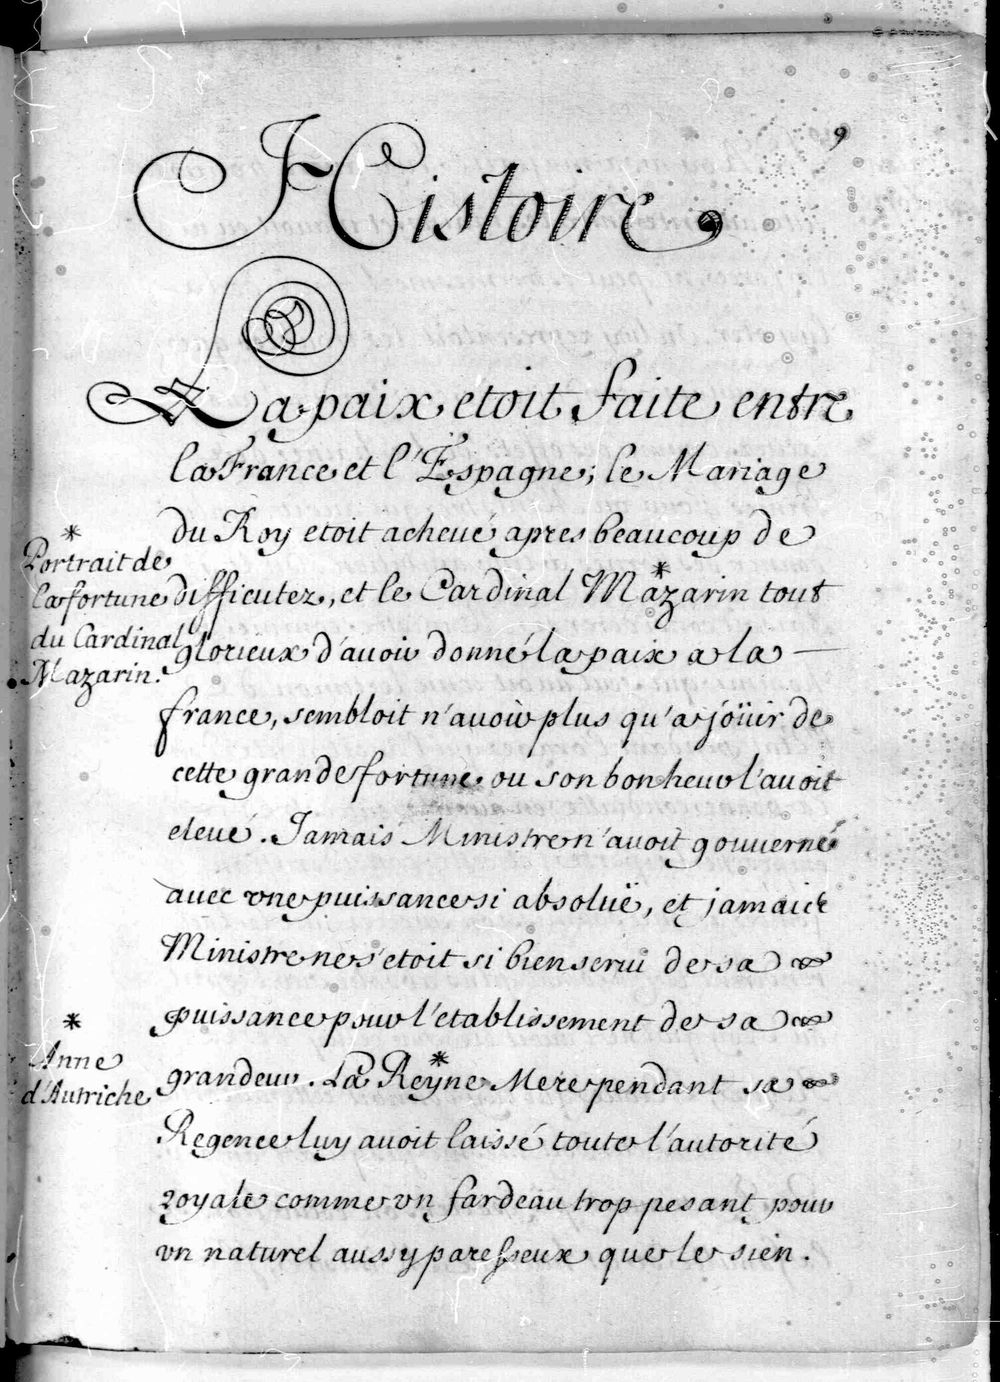 Histoire,
La paix etoit faite entre
la France et l'Espagne; le Mariage
du Roy etoit acheué apres beaucoup de
difficutez, et le Cardinal Mazarin* tout
glorieux d'auoir donné la paix a la
france, sembloit n'auoir plus qu'a joüir de
cette grande fortune ou son bonheur l'auoit
eleué. Jamais Ministre n'auoit gouuerné
auec vne puissance si absoluë, et jamais
Ministre ne s'etoit si bien serui de sa
puissance pour l'etablissement de sa
grandeur. La Reyne* Mere pendant sa
Regence luy auoit laissé toute l'autorité
royale comme vn fardeau trop pesant pour
vn naturel aussy paresseux que le sien.
*
Portrait de
la fortune
du Cardinal
Mazarin.
*
Anne
d'Autriche